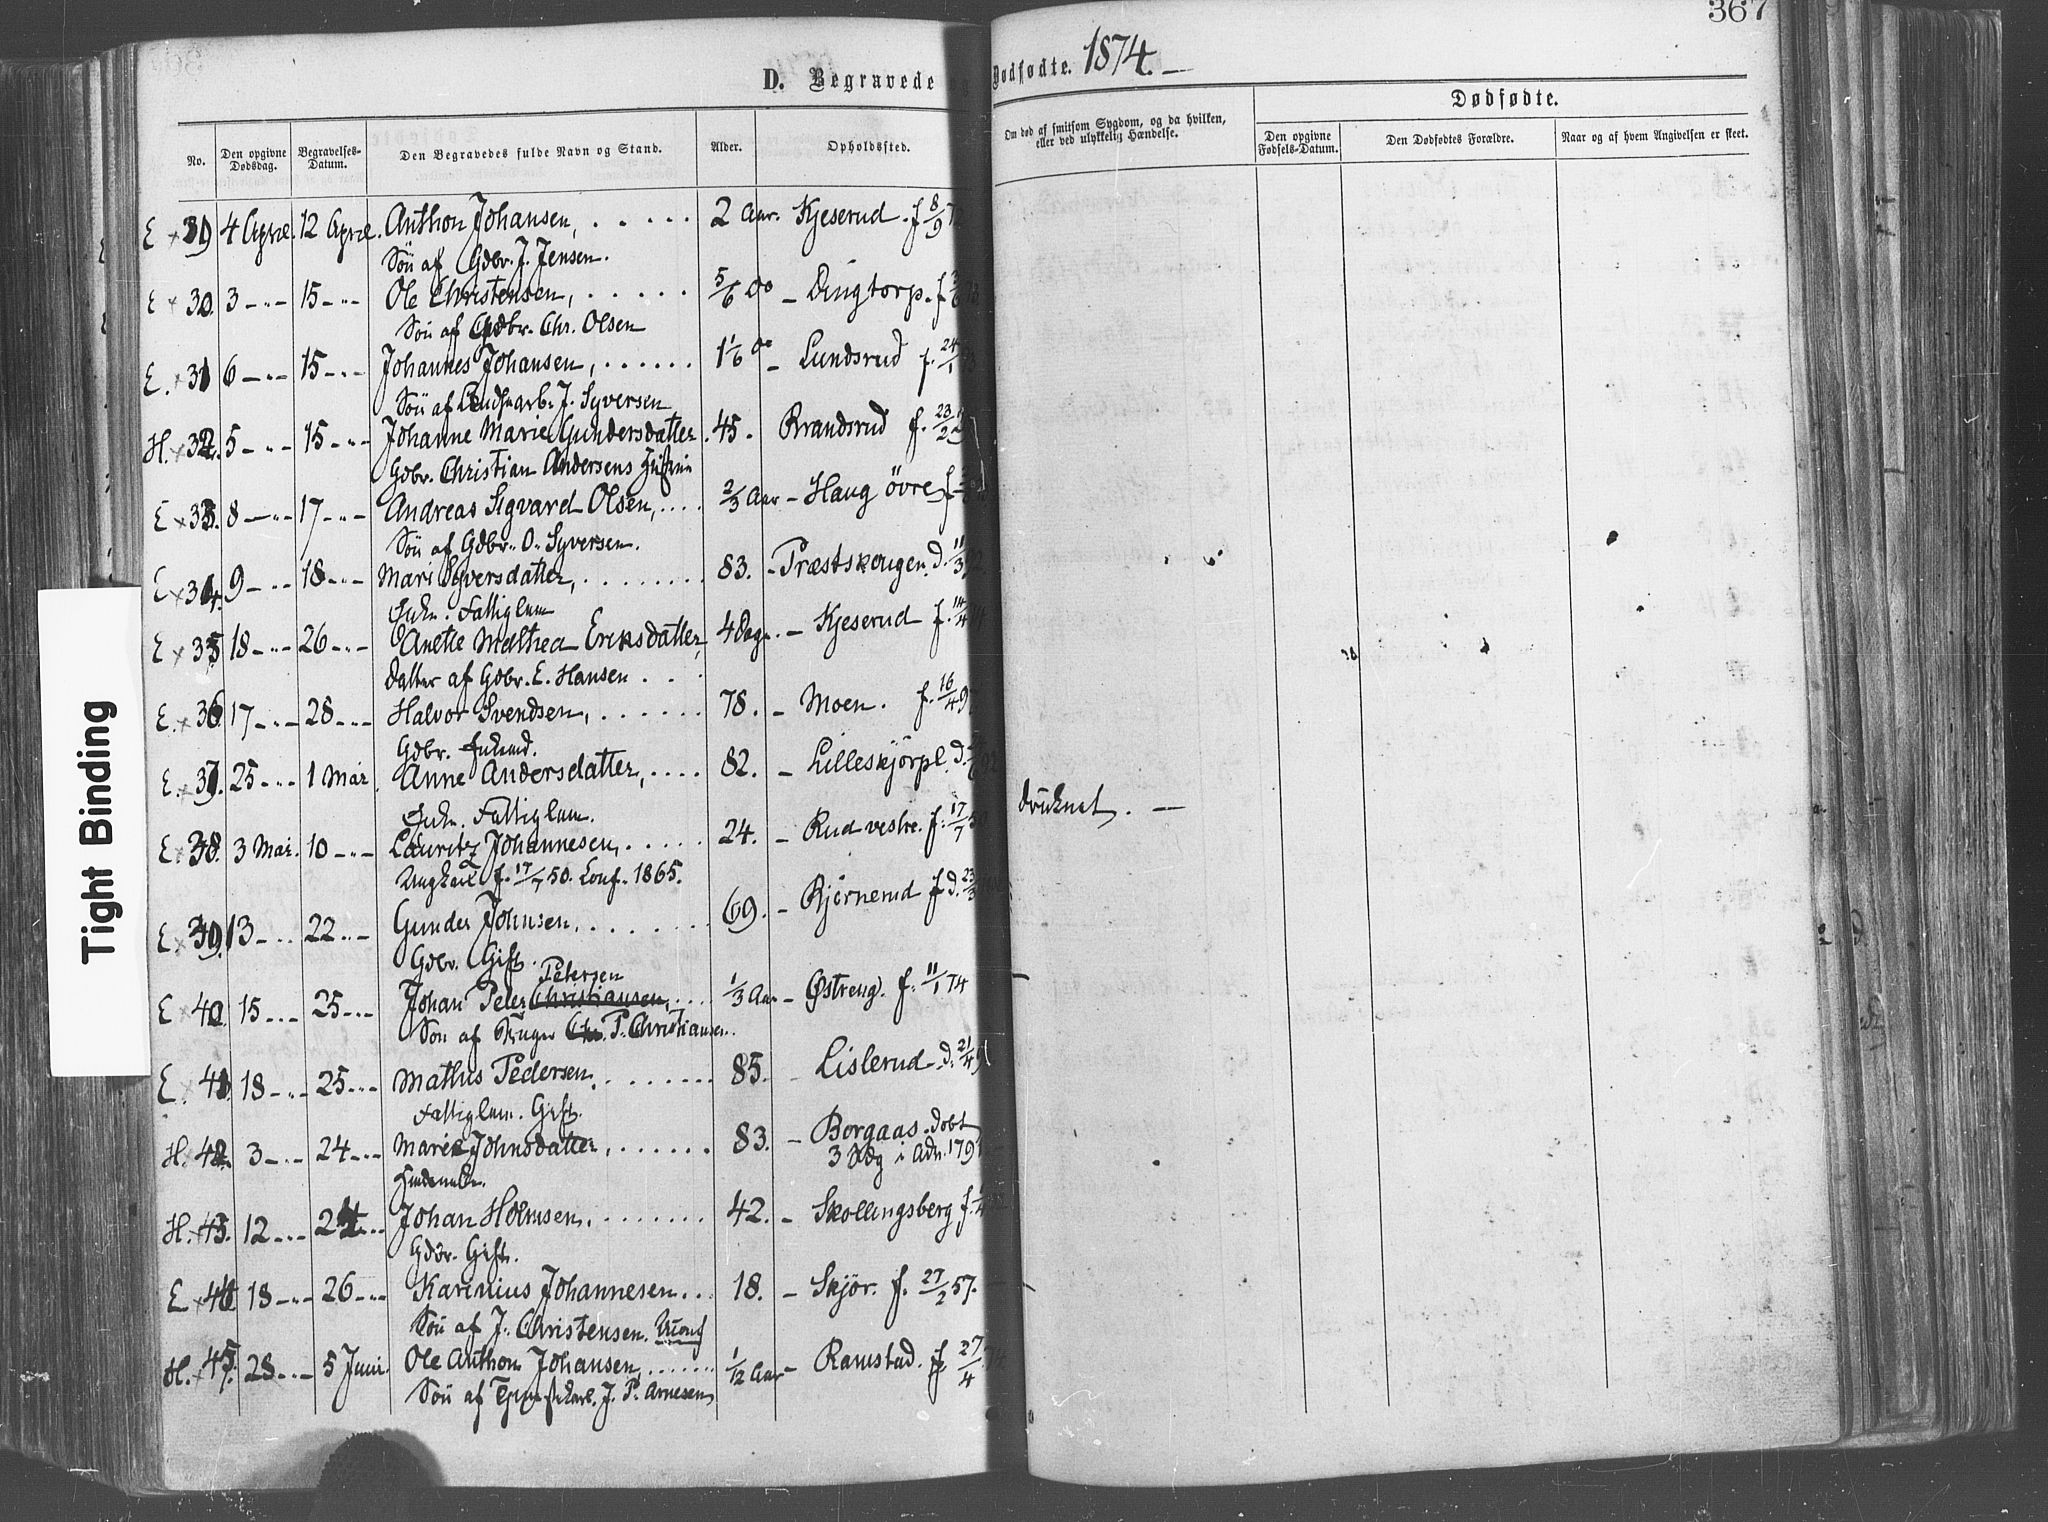 367
D. Begravede og Dødfødte. 1874. —
No. Den opgivne Dødsdag. Begravelses-Datum. Den Begravedes fulde Navn og Stand. Alder. Opholdssted. Om død af smitsom Sygdom, og da hvilken, eller ved ulykkelig Hændelse. Dødfødte.
Den opgivne Fødsels-Datum. Den Dødfødtes Forældre. Naar og af hvem Angivelsen er skeet.
E × 29 4 April. 12 April. Anthon Johansen, . . . . . 2 Aar. Kjeserud. f 8/9 72
Sön af Gdbr. J. Jensen.
E × 30. 3 — „ — 15 — „ — Ole Christensen, . . . . . 5/6 do — Dingtorp. f.
Sön af Gdbr. Chr. Olsen
E. × 31 6 — „ — 15 — „ — Johannes Johansen, . . . . . . 1 1/6 do — Lundsrud f. 24/1 73
Sön af Landharb. J. Syversen
H. × 32. 5 — „ — 15 — „ — Johanne Marie Gundersdatter. 45. Brandsrud f. 23/2
Gdbr. Christian Andersens Hustru
E × 33. 8 — „ — 17 — „ — Andreas Sigvard Olsen, . . . . 2/3 Aar — Haug övre f.
Sön af Gdbr. O. Syversen.
E × 34. 9 — „ — 18 — „ — Mari Syversdatter, . . . . . . . . 83. — Præstskougen. d. 11/3 92
Enke. Fattiglem
E × 35 18 — „ — 26 — „ — Anette Mathea Eriksdatter, 4 Dage. — Kjeserud f. 14/4 74
Datter af Gdbr. E. Hansen . . .
E. × 36 17 — „ — 28 — „ — Halvor Svendsen, . . . . . . 78. — Moen. f. 16/4 9
Gdbr. Enkemd.
E. × 37. 25 — „ — 1 Mai. Anne Andersdatter, . . . . 82. — Lilleskjörpl. d.
Enke. Fattiglem.
E. × 38. 3 Mai. 10 — „ — Lauritz Johannesen, . . . . . 24. — Rud vestre. f. 17/7 50 druknet. —
Ungkarl f. 17/7 50. Conf. 1865.
E × 39. 13 — „ — 22 — „ — Gunder Johnsen, . . . . . . . 69. — Bjørnerud f d. 23/3
Gdbr. Gift.
Petersen
E × 40. 15 — „ — 25 — „ — Johan Peter Christiansen, . . . . 1/3 Aar — Østreng. f. 11/1 74
Sön af Bruger Chr. P. Christiansen.
E × 41 18 — „ — 25 — „ — Mathis Pedersen, . . . . . . . . 85. — Lislerud d. 21/4
Fattiglem. Gift.
H. × 42. 3 — „ — 24 — „ — Marie Johnsdatter, . . . . . . . 83. — Borgaas. døbt
3 Sdg i Adv. 179
H. × 43. 12 — „ — 24 — „ — Johan Holmsen, . . . . . . . . 42. — Skollingsberg f.
Gdbr. Gift.
E × 44 18 — „ — 26 — „ — Karinius Johannesen . . 18. — Skjør. f. 27/2 57.
Sön af J. Christensen.
H. × 45. 28 — „ — 5 Juni. Ole Anthon Johansen, . . . . . . 1/12 Aar — Ramstad. f. 27/4 74
Sön af Tjenestekarl. J. P. Arnesen
Tight Binding